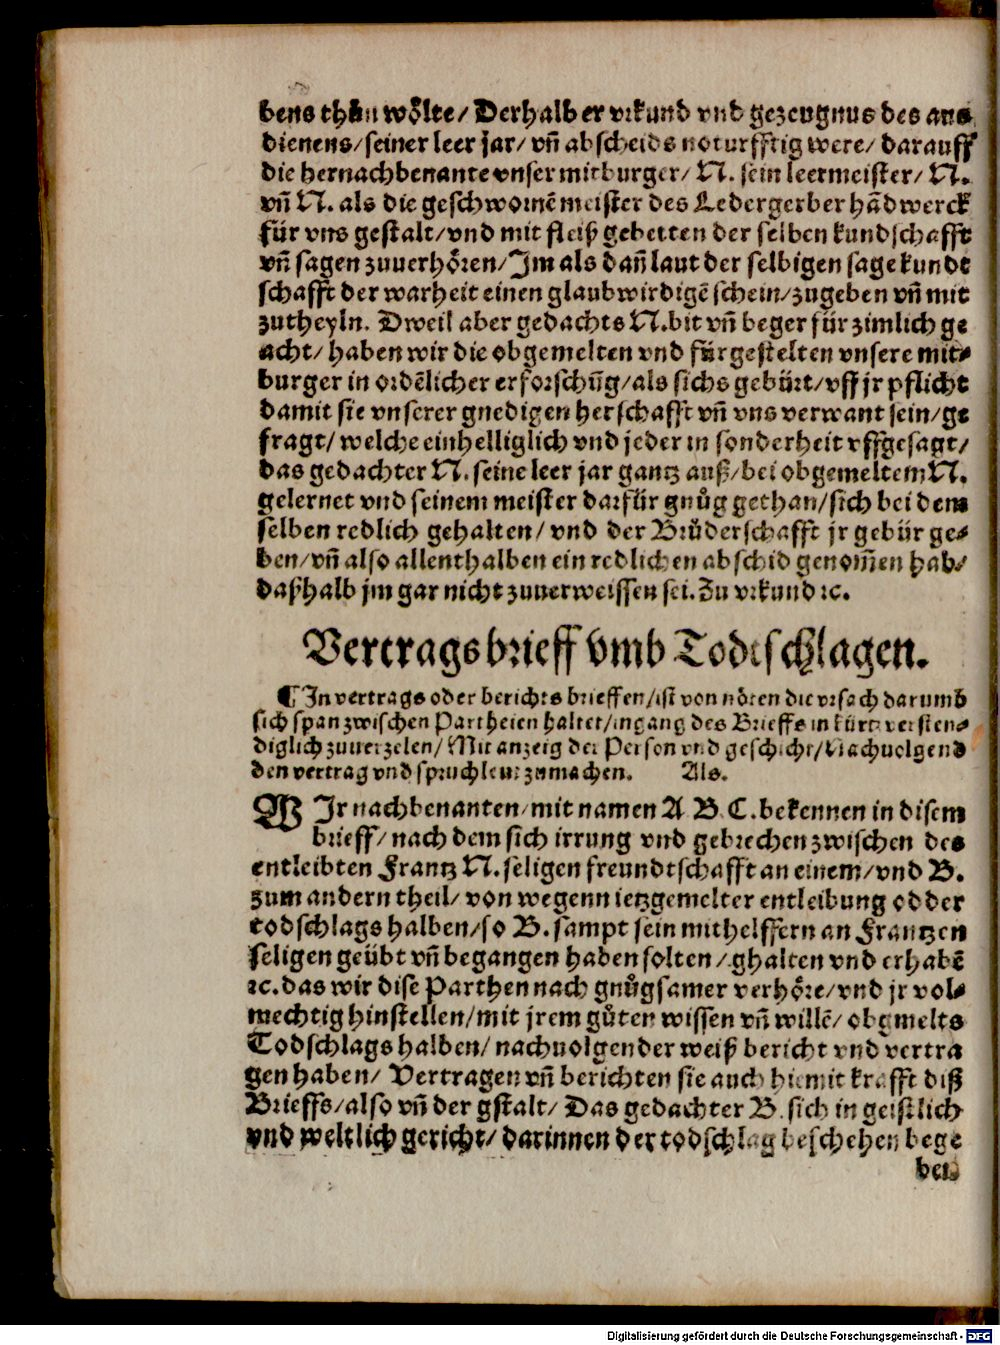 bens thůn wőlte/ Derhalb er vrkund vnd gezeugnus des aus
dienens/ seiner leer jar/ vn̄ abscheids noturfftig were/ darauff
die hernachbenante vnser mitburger/ N. sein leermeister/ N.
vn̄ N. als die geschwornē meister des Ledergerber hādwerck
für vns gestalt/ vnd mit fleiß gebetten der selben kundschafft
vn̄ sagen zuuerhőren/ Jm als dañ laut der selbigen sage kundt
schafft der warheit einen glaubwirdigē schein/ zugeben vn̄ mit
zutheyln. Dweil aber gedachts N. bit vn̄ beger für zimlich ge
acht/ haben wir die obgemelten vnd fürgestelten vnsere mit⸗
burger in ordēlicher erforschūg/ als sichs gebürt/ vff jr pflicht
damit sie vnserer gnedigen herschafft vn̄ vns verwant sein/ ge
fragt/ welche einhelliglich vnd jeder in sonderheit vffgesagt/
das gedachter N. seine leer jar gantz auß/ bei obgemeltem N.
gelernet vnd seinem meister darfür gnůg gethan/ sich bei dem
selben redlich gehalten/ vnd der Brůderschafft jr gebür ge⸗
ben/ vn̄ also allenthalben ein redlichen abschid genom̄en hab/
daßhalb jm gar nicht zuuerweissen sei. Zu vrkund ꝛc.
Vertragsbrieff vmb Todtschlagen.
¶ Jn vertrags oder berichts brieffen/ ist von nőten die vrsach darumb
sich span zwischen Partheien haltet/ ingang des Brieffs in kürtz versten⸗
diglich zuuerzelen/ Mit anzeig der Person vnd geschicht/ Nachuolgend
den vertrag vnd spruchleut zumachen. Als.
WJr nachbenanten/ mit namen A B. C. bekennen in disem
brieff/ nach dem sich irrung vnd gebrechen zwischen des
entleibten Frantz N. seligen freundtschafft an einem/ vnd B.
zum andern theil/ von wegenn ietzgemelter entleibung od der
todschlags halben/ so B. sampt sein mithelffern an Frantzen
seligen geübt vn̄ begangen haben solten/ ghalten vnd erhabē
ꝛc. das wir dise Parthen nach gnůgsamer verhőre/ vnd jr vol⸗
mechtig hinstellen/ mit jrem gůten wissen vn̄ willē/ obgmelts
Todschlags halben/ nachuolgender weiß bericht vnd vertra
gen haben/ Vertragen vn̄ berichten sie auch hiemit krafft diß
Brieffs/ also vn̄ der gstalt/ Das gedachter B. sich in geistlich
vnd weltlich gericht/ darinnen der todschlag beschehen bege
ben
Digitalisierung gefördert durch die Deutsche Forschungsgemeinschaft - DFG